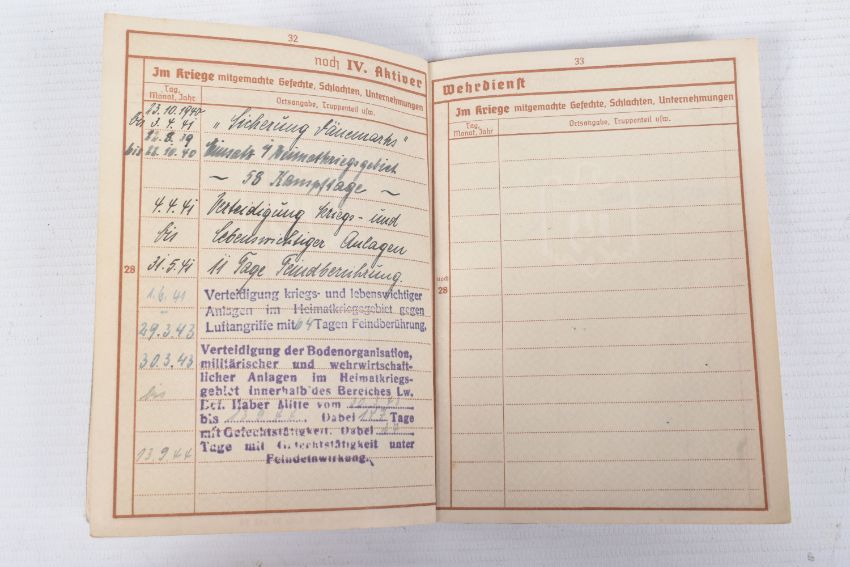 32
noch IV. Aktiver
Im Kriege mitgemachte Gefechte, Schlachten, Unternehmungen
Tag, Monat, Jahr
Ortsangabe, Truppenteil usw.
23.10.1940
bis 3.4.41
„Sicherung Dänemarks"
22.8.39
bis 22.10.40
Einsatz i/Heimatkriegsgebiet
~ 58 Kampftage ~
4.4.41 Verteidigung kriegs- und
bis lebenswichtiger Anlagen
28
31.5.41 11 Tage Feindberührung
1.6.41 Verteidigung kriegs- und lebenswichtiger
– Anlagen im Heimatkriegsgebiet gegen
29.3.43 Luftangriffe mit 64 Tagen Feindberührung,
30.3.43 Verteidigung der Bodenorganisation,
militärischer und wehrwirtschaft-
licher Anlagen im Heimatkriegs-
bis gebiet innerhalb des Bereiches Lw.
Mitte vom
bis Dabei Tage
mit Gefechtstätigkeit. Dabei
13.9.44 Tage mit Gefechtstätigkeit unter
Feindeinwirkung.
33
Wehrdienst
Im Kriege mitgemachte Gefechte, Schlachten, Unternehmungen
Tag, Monat, Jahr
Ortsangabe, Truppenteil usw.
noch
28